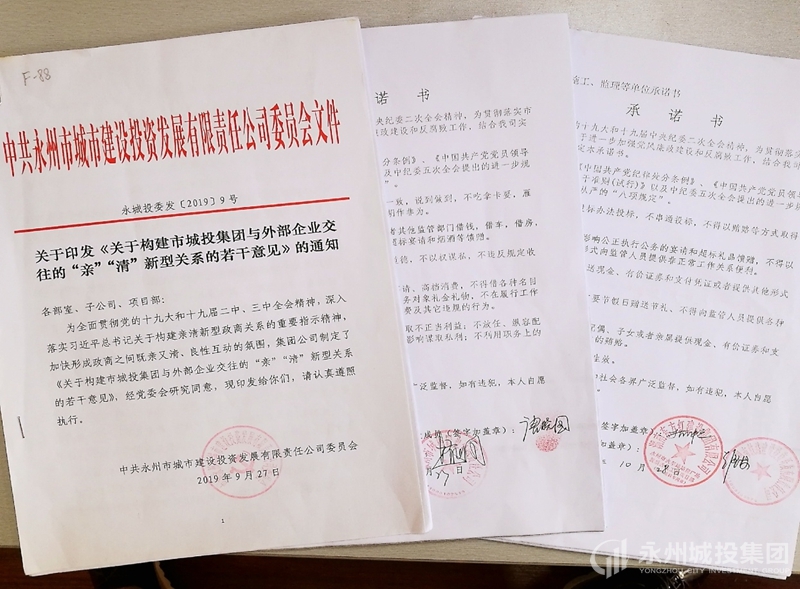 F-88
中共永州市城市建设投资发展有限责任公司委员会文件
永城投委发〔2019〕9号
关于印发《关于构建市城投集团与外部企业交
往的“亲”“清”新型关系的若干意见》的通知
各部室、子公司、项目部：
为全面贯彻党的十九大和十九届二中、三中全会精神，深入
落实习近平总书记关于构建亲清新型政商关系的重要指示精神，
加快形成政商之间既亲又清、良性互动的氛围，集团公司制定了
《关于构建市城投集团与外部企业交往的“亲”“清”新型关系
的若干意见》，经党委会研究同意，现印发给你们，请认真遵照
执行。
中共永州市城市建设投资发展有限责任公司委员会
2019年9月27日
1
诺书
央纪委二次全会精神，为贯彻落实市
政建设和反腐败工作，结合我司实
分条例》、《中国共产党党员领导
及中纪委五次全会提出的进一步规
”。
一致，说到做到，不吃拿卡要，雁
者其他监管部门借钱，借车，借房，
德，不以权谋私，不违反规定收
请、高档消费，不得借各种名目
务对象礼金礼物，不在履行工作
费及其它违规的行为。
取不正当利益；不放任、纵容配
影响谋取私利；不利用职务上的
泛监督，如有违犯，本人自愿
（签字加盖章）：
施工、监理等单位承诺书
承诺书
的十九大和十九届中央纪委二次全会精神，为贯彻落实
于进一步加强党风廉政建设和反腐败工作，结合我
定本承诺书。
《中国共产党纪律处分条例》、《中国共产党党员领
干准则(试行)》以及中纪委五次全会提出的进一步
从严的“八项规定”。
标办法投标，不串通投标，不得以赂赂等方式取得
影响公正执行公务的宴请和超标礼品馈赠，不得以
形式向监管人员提供非正常工作关系便利。
送现金、有价证券和支付凭证或者提供其他形式
要节假日赠送节礼、不得向监管人员提供各种
配偶、子女或者亲属提供现金、有价证券和支
的贿赂。
生效。
社会各界广泛监督，如有违犯，本人自愿
签字加盖章）
加盖章）：
10月28日
永州城投集团
YONGZHOU CITY INVESTMENT GROUP